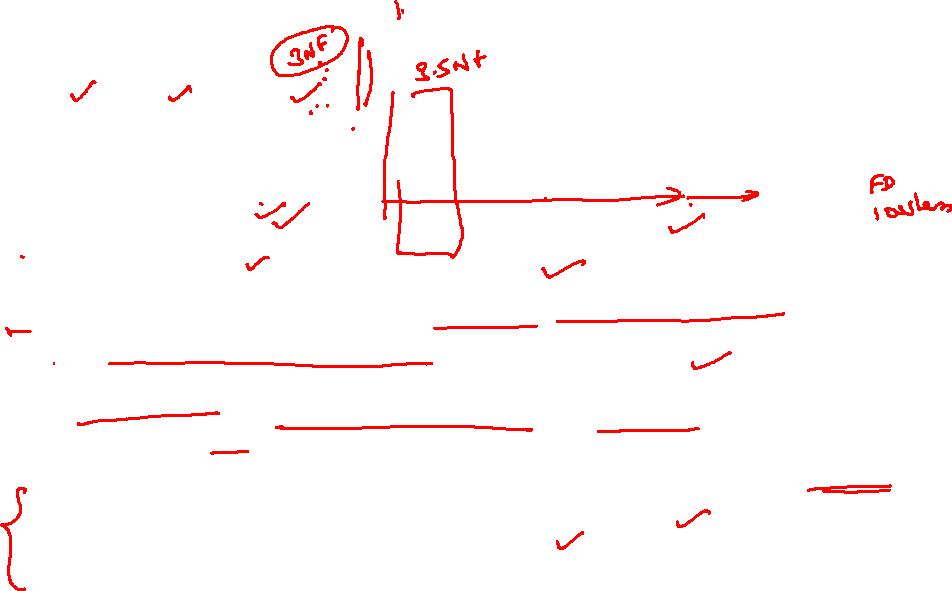 3NF
3.5NF
FD
lossless